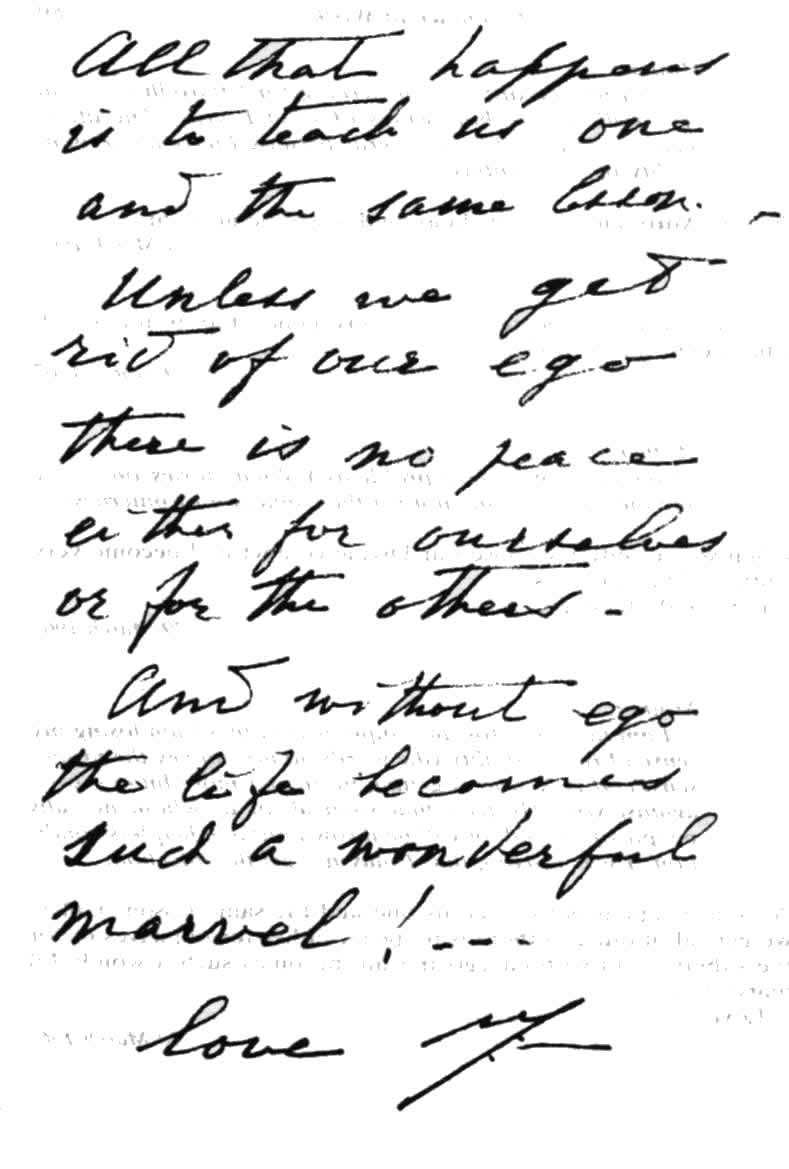 All that happens
is to teach us one
and the same lesson. -
Unless we get
rid of our ego
there is no peace
either for ourselves
or for the others -
And without ego
the life becomes
such a wonderful
marvel! ---
love